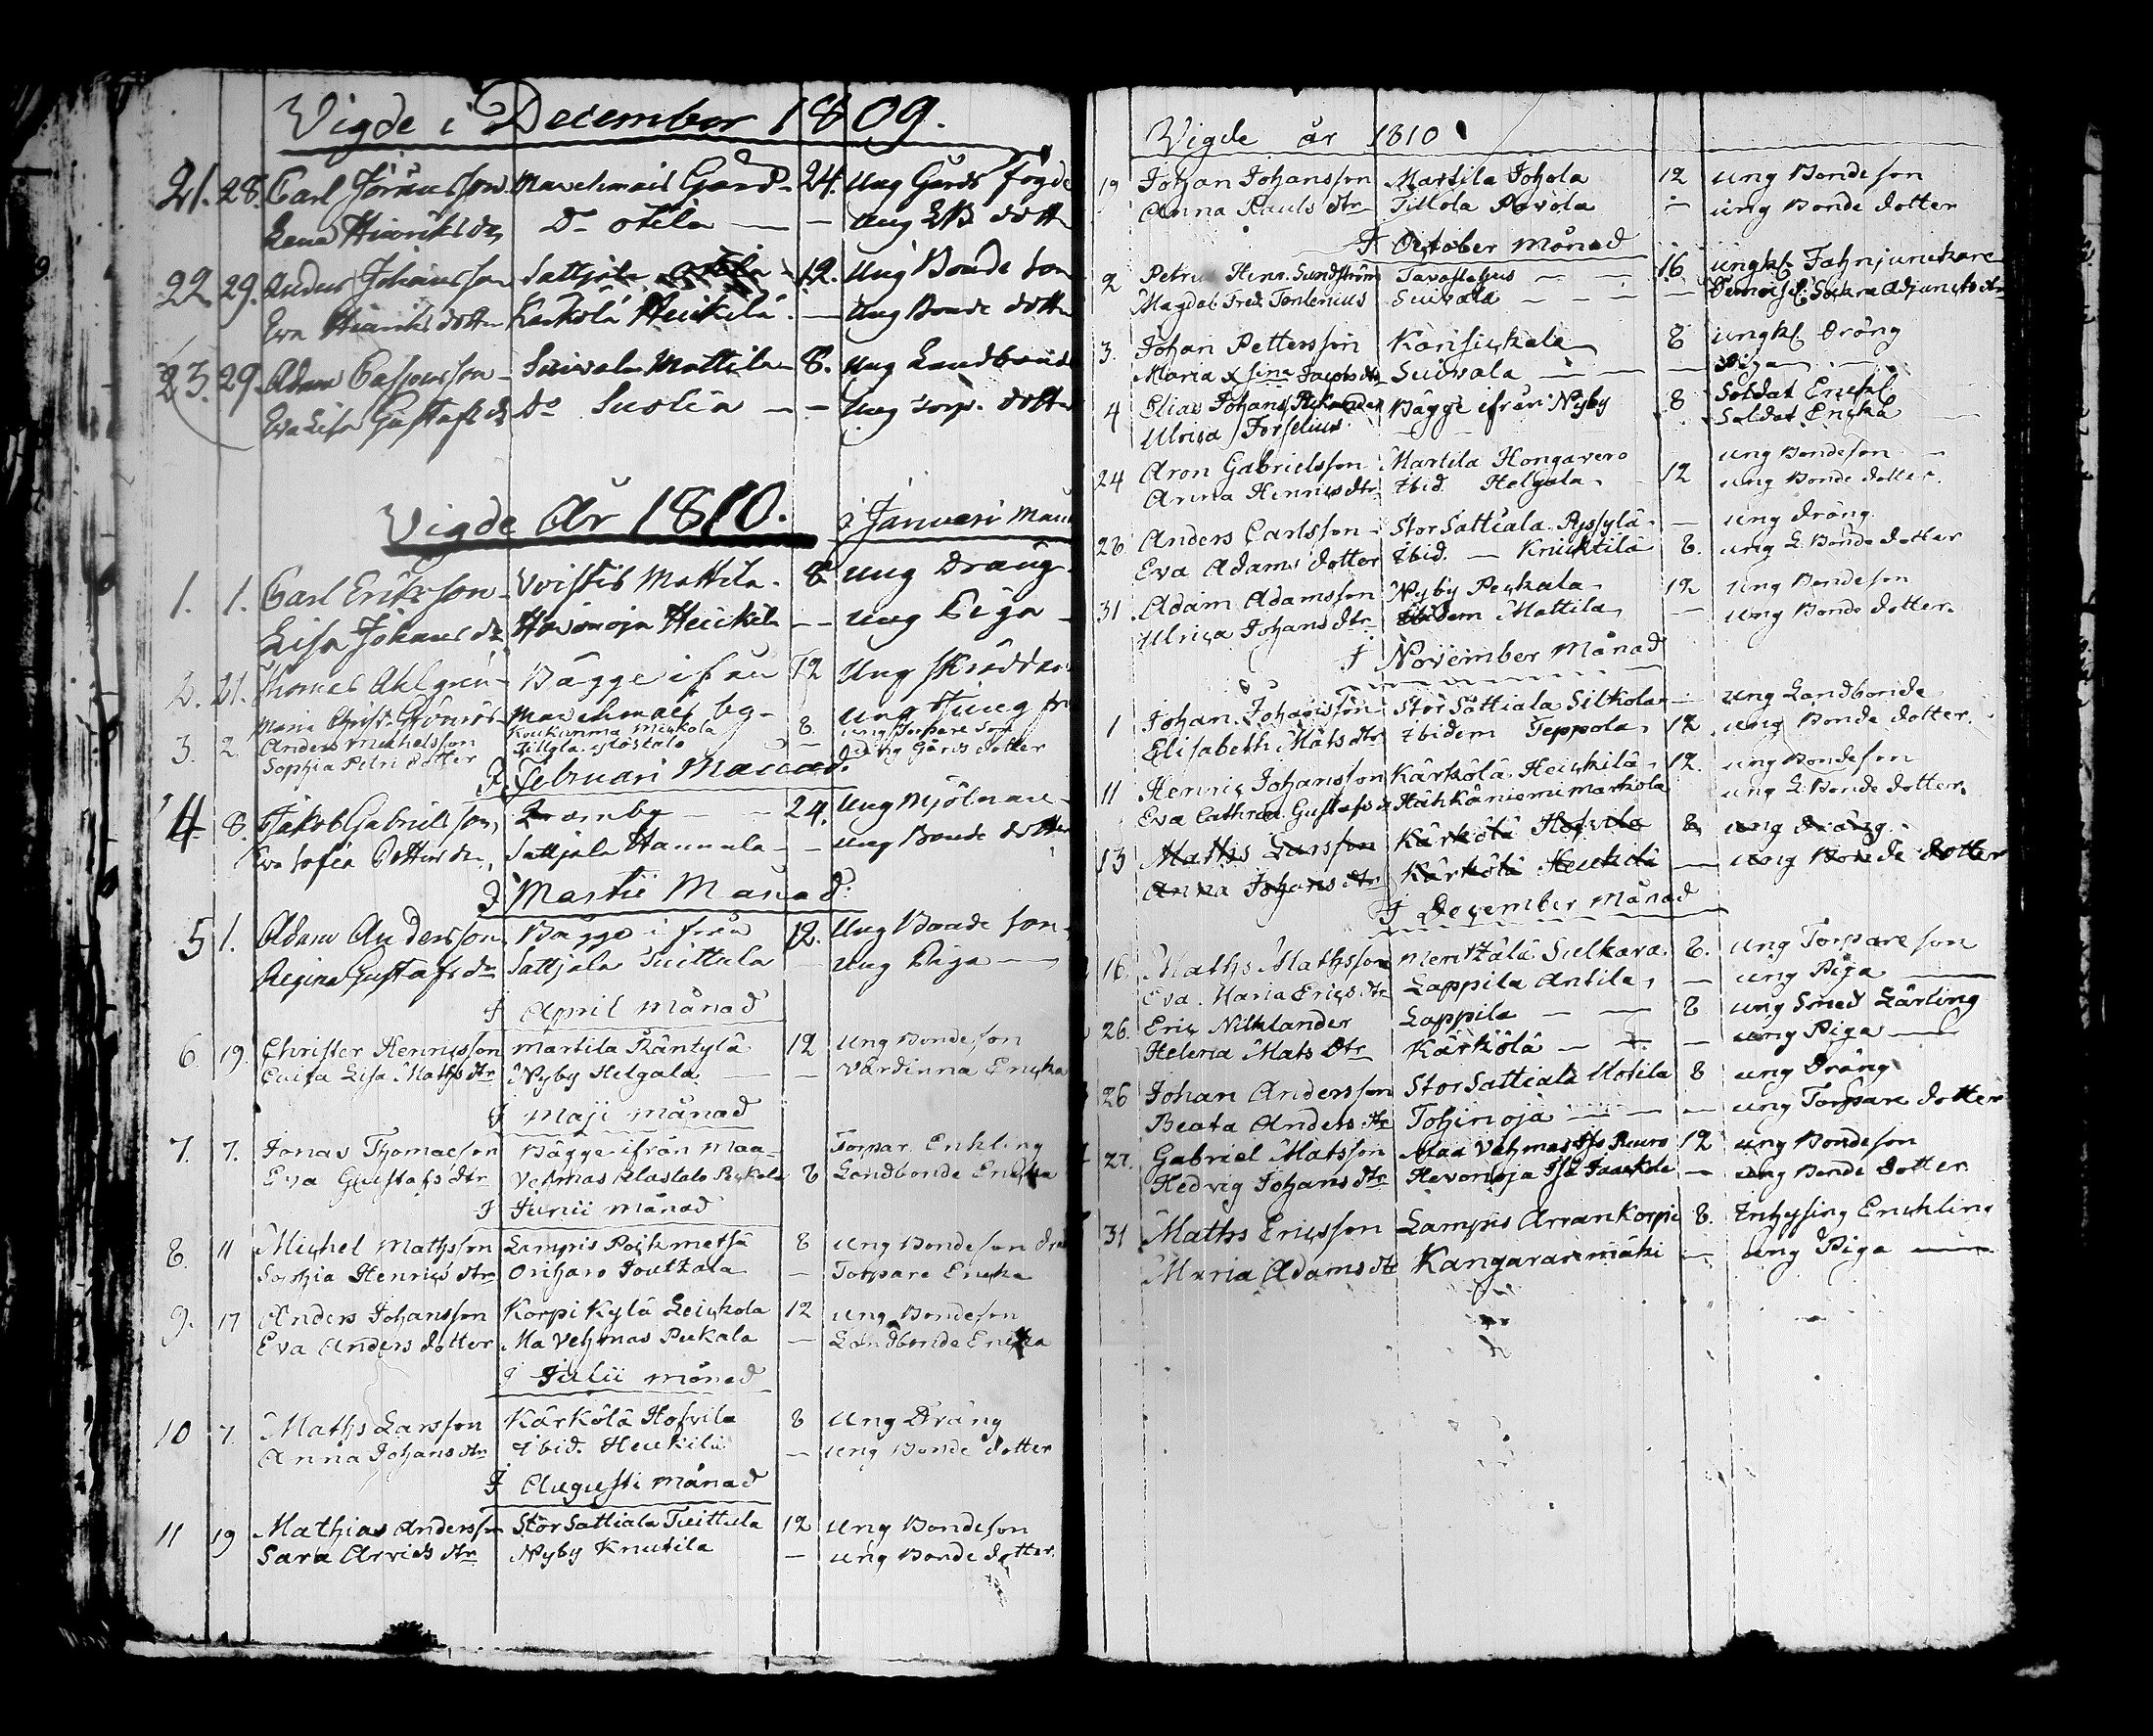 Vigde i December 1809.
21. 28. Carl Jöransson Mavehmais Gård 24. Ung Gårds fogde
Lena Hinriksdr Do Otila — — Ung LB dotter
22. 29. Anders Johansson Sattjala 12. Ung Bonde son
Eva Hinriks dotter Kerkola Heickilä — Ung Bonde dotter
23. 29. Adam Casperson Suivala Mattila 8. Ung Landbonde
Eva Lisa Gustafs dr Do Suolia — — Ung Torp. dotter
Vigde År 1810. i Januari Mån
1. 1. Carl Eriksson Mattila 8 Ung Dräng
Lisa Johans dr Havonoja Heickilä — Ung Piga
2. 21. Thomas Ahlgren Bägge ifrån 12 Ung Skräddar
Maria Christ. Mavehmais by Ung
3. 2. Anders Michelsson Koukunma Mickola 8. ung Torpare Son
Sophia Petri dotter Tillola — Ung Gårds dotter
I Februari Månad.
4 8. Jakob Gabrielsson Kramby — 24. Ung Mjölnare
Eva Sofia Petters dr Sattjala Hannula — Ung Bonde dotter
I Martii Månad.
5 1. Adam Andersson Bägge ifrån 12. Ung Bonde son
Regina Gustafs dr Sattjala Tuittula — Ung Piga
I April Månad
6. 19. Christer Henricsson Martila Räntylä 12 Ung Bondeson
Lovisa Lisa Maths dtr Nyby Helgala — Värdinna Encka
I Maji månad
7. 7. Jonas Thomasson Bägge ifrån Maa- Torpar. Enkling
Eva Gustafs dtr Vehmas Alastalo Peckola 8 Landbonde Encka
I Junii månad
8. 11 Michel Mathsson Lampis Poikmetsä 8 Ung Bondeson
Sophia Henrics dtr Oriharo Joutzala — Torpare Encka
9. 17 Anders Johansson Korpikylä Leickola 12 ung Bondeson
Eva Anders dotter Ma Vehmas Pukala — Landbonde Encka
I Julii månad
10 7. Maths Larsson Kärkölä Hofvila 8 Ung Dräng
Anna Johans dtr Ibid. Heickilä — ung Bonde dotter
I Augusti månad
11 19 Mathias Andersson Stor Sattiala Tuittula 12 Ung Bondeson
Sara Arvids dtr Nyby Knutila — ung Bonde dotter.
Vigde år 1810
19 Johan Johansson Martila Johola 12 ung Bondeson
Anna Pauls dtr Tillola Povola — ung Bonde dotter
I October månad
2 Petrus Henr. Sundström Tavastehus — — 16 ungkl Fahnjunckare
Magdal. Fred. Tenlenius Suivala — — — Demoiselle Sockne Adjuncts dtr
3. Johan Pettersson Kansickala 8 ungkl Dräng
Maria Stina Jacobs dtr Suivala — — — Piga
4 Elias Johans Bägge ifrån Nyby 8 Soldat Enckl
Ulrica Forselius Soldat Encka
24 Aron Gabrielsson Martila Hongavero ung Bondeson
Anna Henrics dtr Ibid. Helgala 12 ung Bonde dotter.
28 Anders Carlsson Stor Sattiala Pyssylä — ung dräng
Eva Adams dotter Ibid. — Knicktilä 8. ung L Bonde dotter
31. Adam Adamsson Nyby Peckala 12 Ung Bondeson
Ulrica Johans dtr Ibidem Mattila — ung Bonde dotter.
I November Månad
1 Johan Johansson Stor Sattiala Silkola — Ung Landbonde
Elisabeth Mats dtr Ibidem Teppola 12 ung Bonde dotter.
11 Henric Johansson Kärkölä Heickilä 12. ung Bondeson
Eva Cathrina Gustafs dr Hähkäniemi Markola ung L. Bonde dotter.
13 Maths Larsson Kärkölä Hofvila 8 ung dräng
Anna Johans dtr Kärkölä Heickilä — ung Bonde dotter
I December månad
16. Maths Mathsson Mentzälä Sulkava. 8. ung Torpare son
Eva Maria Erics dtr Lappila Antila — ung Piga —
26. Eric Nilklander Lappila — — 8 ung Smed Lärling
Helena Mats dtr Kärkölä — — — ung Piga —
26 Johan Andersson Stor Sattiala Uotila 8 ung Dräng
Beata Anders dtr Tohinoja — — — ung Torpare dotter
27. Gabriel Matsson Maa Vehmas Iso Ruuro 12 ung Bondeson
Hedvig Johans dtr Hevonoja Iso Jauckola — ung Bonde dotter
31 Maths Ericsson Lampis Arrankorpi 8. Inhysing Enckling
Maria Adams dtr Kangarasmäki — ung Piga —